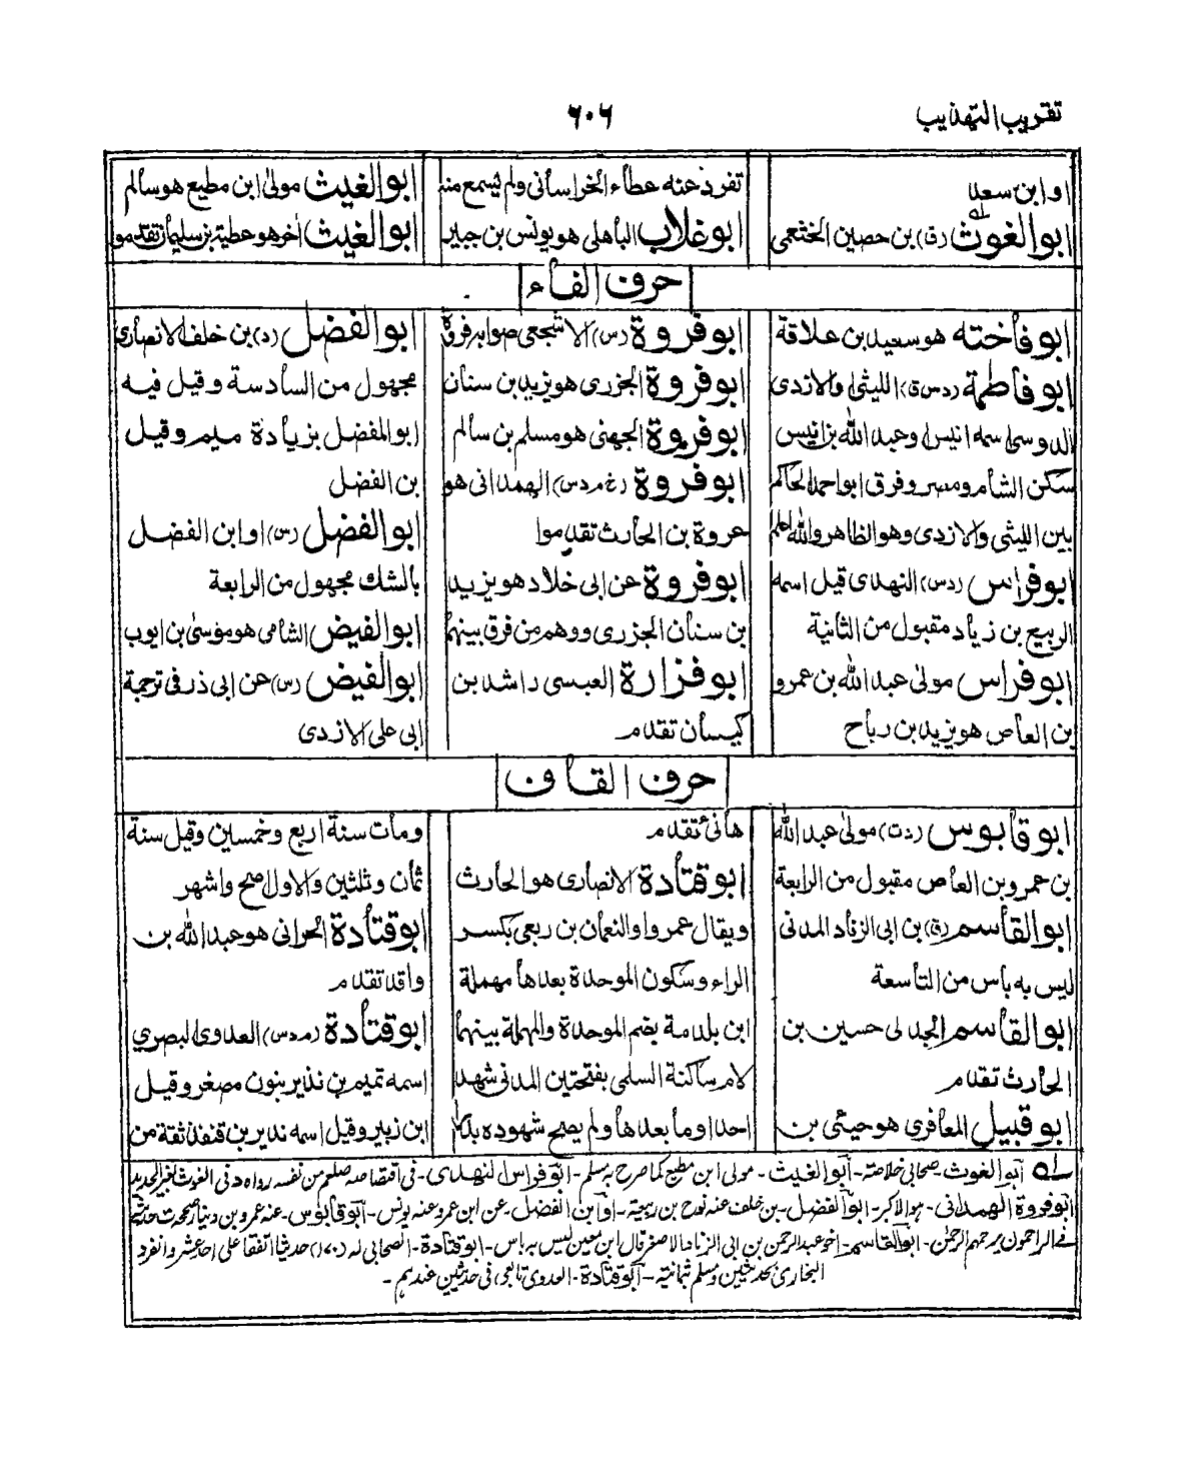 تقريب التهذيب
٦٠٦
او ابن سعد
ابو الغوث (ق) بن حصين الخثعمي
تفرد عنه عطاء الخراساني ولم يسمع منه
ابو غلاب الباهلي هو يونس بن جبير
ابو الغيث مولى ابن مطيع هو سالم
ابو الغيث اخر هو عطية بن سليمان تقدموا
حرف الفاء
ابو فاخته هو سعيد بن علاقة
ابو فاطمة (د س ق) الليثي والازدي
الدوسي اسمه انيس او عبد الله بن انيس
سكن الشام ومصر وفرق ابو احمد الحاكم
بين الليثي والازدي وهو الظاهر والله اعلم
ابو فراس (د س) النهدي قيل اسمه
الربيع بن زياد مقبول من الثانية
ابو فراس مولى عبد الله بن عمرو
بن العاص هو يزيد بن رباح
ابو فروة (س) الاشجعي صوابه فروة
ابو فروة الجزري هو يزيد بن سنان
ابو فروة الجهني هو مسلم بن سالم
ابو فروة (خ م د س) الهمداني هو
عروة بن الحارث تقدموا
ابو فروة عن ابي خلاد هو يزيد
بن سنان الجزري ووهم من فرق بينهما
ابو فزارة العبسي راشد بن
كيسان تقدم
ابو الفضل (د) بن خلف الانصاري
مجهول من السادسة وقيل فيه
ابو المفضل بزيادة ميم وقيل
بن الفضل
ابو الفضل (س) او ابن الفضل
بالشك مجهول من الرابعة
ابو الفيض الشامي هو موسى بن ايوب
ابو الفيض (س) عن ابي ذر في ترجمة
ابي علي الازدي
حرف القاف
ابو قابوس (د ت) مولى عبد الله
بن عمرو بن العاص مقبول من الرابعة
ابو القاسم (ق) بن ابي الزناد المدني
ليس به باس من التاسعة
ابو القاسم الجدلي حسين بن
الحارث تقدم
ابو قبيل المعافري هو حيئ بن
هانئ تقدم
ابو قتادة الانصاري هو الحارث
ويقال عمرو او النعمان بن ربعي بكسر
الراء وسكون الموحدة بعدها مهملة
ابن بلدمة بضم الموحدة والمهملة بينهما
لام ساكنة السلمي بفتحتين المدني شهد
احدا وما بعدها ولم يصح شهوده بدرا
ومات سنة اربع وخمسين وقيل سنة
ثمان وثلثين والاول اصح واشهر
ابو قتادة الحراني هو عبد الله بن
واقد تقدم
ابو قتادة (م د س) العدوي البصري
اسمه تميم بن نذير بنون مصغر وقيل
ابن زبير وقيل اسمه نذير بن قنفذ ثقة من
له ابو الغوث - صحابي خلاصة - ابو الغيث - مولى ابن مطيع كما صرح به مسلم - ابو فراس النهدي - في اقتصاصه صلعم من نفسه رواه د ني الغوث
ابو فروة الهمداني - هو الاكبر - ابو الفضل - بن خلف عنه نوح بن ربيعة - او ابن الفضل - عن ابن عمرو عنه يونس - ابو قابوس - عنه عمرو بن دينار صححت حديثه
في الراحمون يرحمهم الرحمٰن - ابو القاسم - اخو عبد الرحمن بن ابي الزناد الاصغر قال ابن معين ليس به باس - ابو قتادة - الصحابي له (١٧٠) حديثا اتفقا على احد عشر وانفرد
البخاري بحديثين ومسلم بثمانية - ابو قتادة - العدوي تابعي في حديثين عندهم -